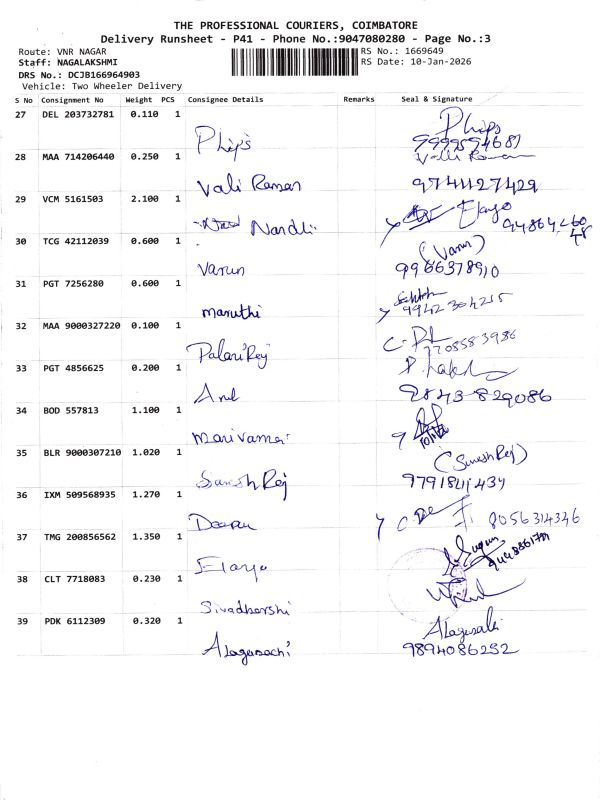 THE PROFESSIONAL COURIERS, COIMBATORE
Delivery Runsheet - P41 - Phone No.:9047080280 - Page No.:3
Route: VNR NAGAR RS No.: 1669649
Staff: NAGALAKSHMI RS Date: 10-Jan-2026
DRS No.: DCJB166964903
Vehicle: Two Wheeler Delivery
S No Consignment No Weight PCS Consignee Details Remarks Seal & Signature
27 DEL 203732781 0.110 1
Phip's Phips
9999594687
28 MAA 714206440 0.250 1 Vali Raman
Vali Raman 9741127429
29 VCM 5161503 2.100 1
Nandhi
30 TCG 42112039 0.600 1 (Varun)
Varun 9966378910
31 PGT 7256280 0.600 1
maruthi 9942304215
32 MAA 9000327220 0.100 1
PalaniRaj 7708583986
33 PGT 4856625 0.200 1
Anil 9843-829086
34 BOD 557813 1.100 1
Marivamai
35 BLR 9000307210 1.020 1 (SureshRaj)
SureshRaj 9791841434
36 IXM 509568935 1.270 1
8056314346
37 TMG 200856562 1.350 1
38 CLT 7718083 0.230 1
Sivadharshi
39 PDK 6112309 0.320 1
Alagusachi 9894086252